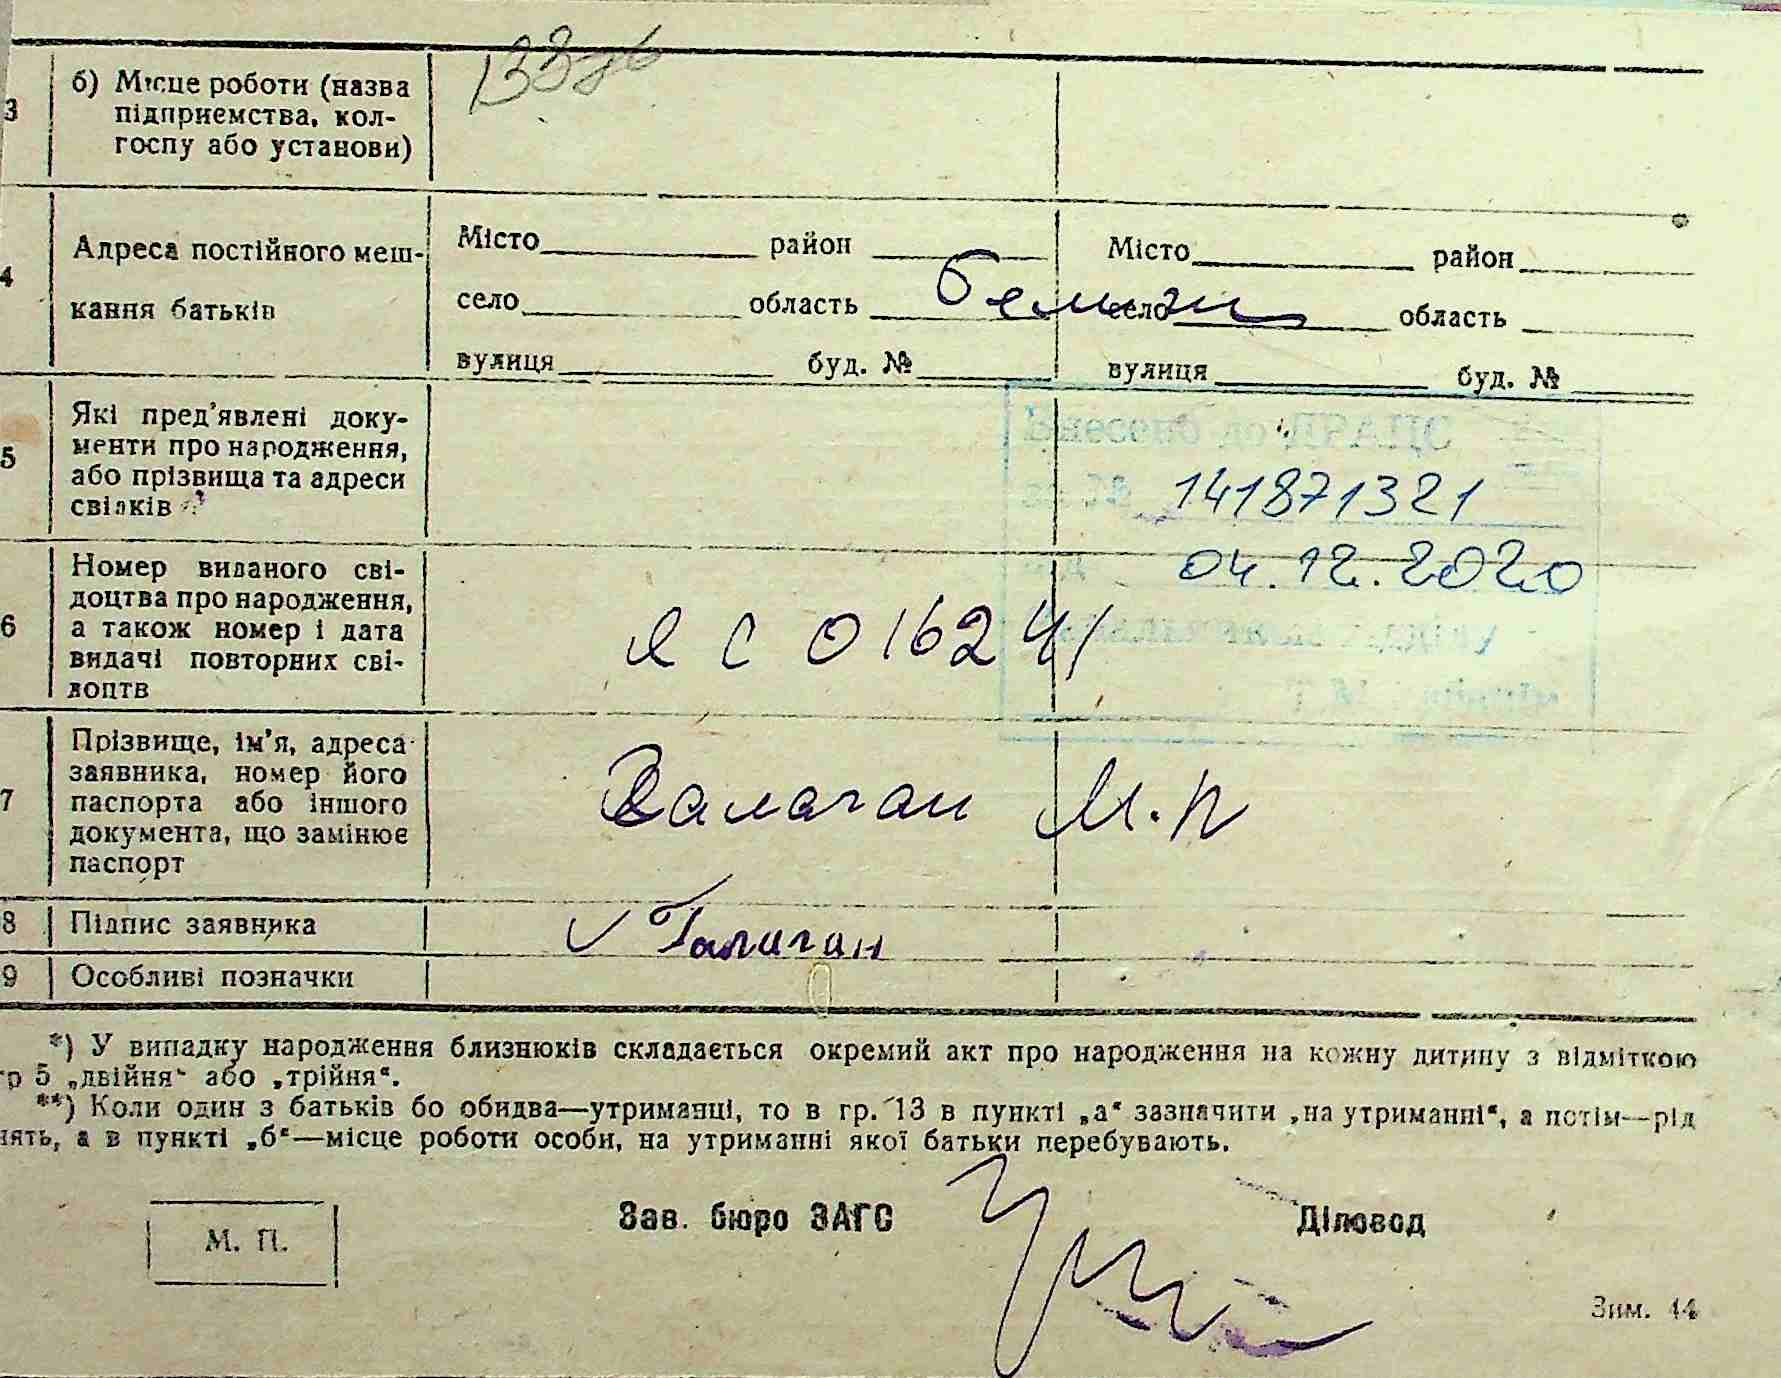 3
б) Місце роботи (назва
підприємства, кол-
госпу або установи)
4
Адреса постійного меш-
кання батьків
Місто район
село область
вулиця буд. №
Місто район
село область
вулиця буд. №
5
Які пред'явлені доку-
менти про народження,
або прізвища та адреси
свідків
Внесено до ДРАЦС
141871321
04.12.2020
6
Номер виданого сві-
доцтва про народження,
а також номер і дата
видачі повторних сві-
доцтв
Я С 016241
7
Прізвище, ім'я, адреса
заявника, номер його
паспорта або іншого
документа, що замінює
паспорт
М.П
8 Підпис заявника
Галаган
9 Особливі позначки
*) У випадку народження близнюків складається окремий акт про народження на кожну дитину з відміткою
гр 5 „двійня“ або „трійня“.
**) Коли один з батьків бо обидва—утриманці, то в гр. 13 в пункті „а“ зазначити „на утриманні“, а потім—рід
нять, а в пункті „б“—місце роботи особи, на утриманні якої батьки перебувають.
Зав. бюро ЗАГС Діловод
М. П.
Зим. 44